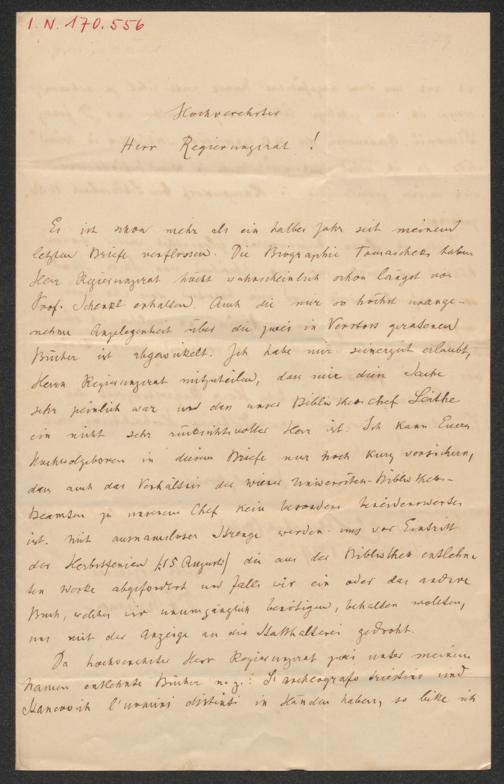 I. N. 170.556
Hochverehrter
Herr Regierungsrat!
Es ist schon mehr als ein halbes Jahr seit meinem
letzten Briefe verflossen. Die Biographie Tomascheks haben
Herr Regierungsrat höchst wahrscheinlich schon längst von
Prof. Schenkl erhalten. Auch die mir so höchst unange-
nehme Angelegenheit über die in Verstoss geratenen
Bücher ist abgewickelt. Ich habe mir seinerzeit erlaubt,
Herrn Regierungsrat mitzuteilen, dass mir diese Sache
sehr peinlich war und dass unser Bibliothekschef
ein nicht sehr rücksichtsvoller Herr ist. Ich kann Euer
Hochwolgeboren in diesem Briefe nur noch kurz versichern,
dass auch das Verhältnis der wiener Universitäts-Bibliotheks-
Beamten zu unserem Chef kein besonders beneidenswertes
ist. Mit ausnahmsloser Strenge werden uns vor Eintritt
der Herbstferien (15 August) die aus der Bibliothek entlehn-
ten Werke abgefordert und falls wir ein oder das andere
Buch, welches wir unumgänglich benötigen, behalten wollten,
uns mit der Anzeige an die Statthalterei gedroht.
Da hochverehrter Herr Regierungsrat unter meinem
Namen entlehnte Bücher u. z.: L'archeografo triestino und
Stancovich l'uomini distinti in Händen haben, so bitte ich